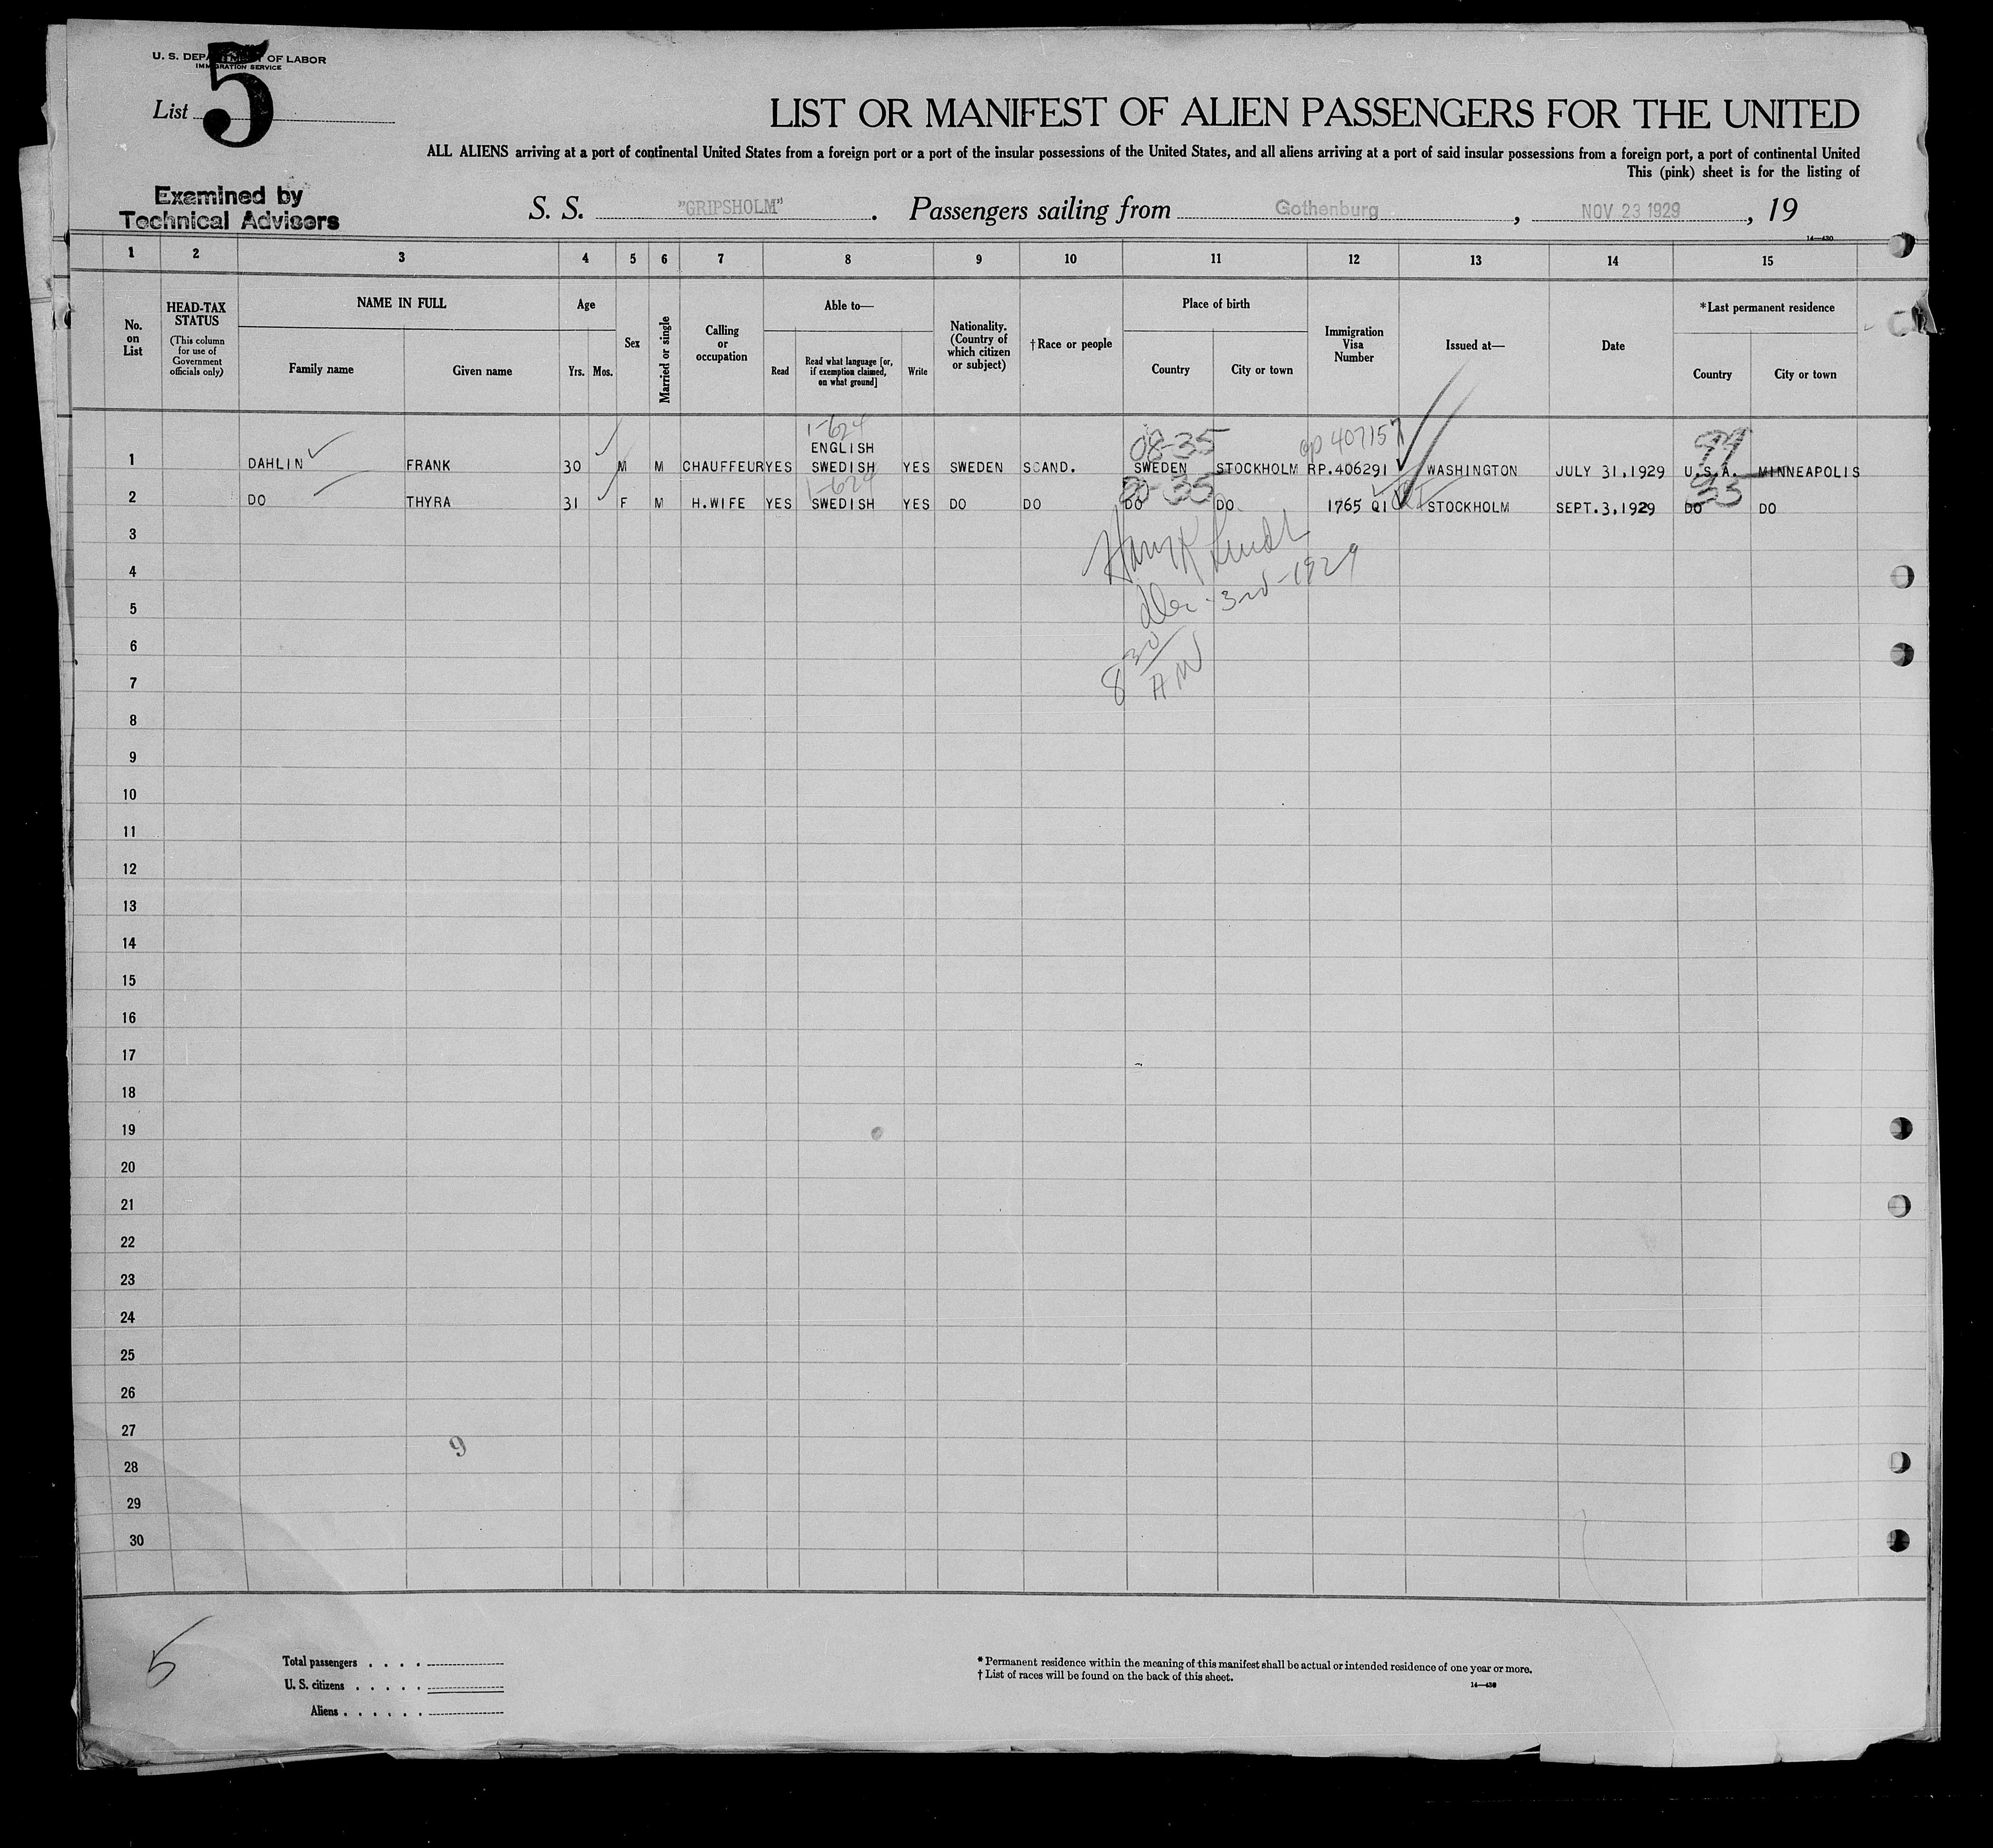 U. S. DEPARTMENT OF LABOR
IMMIGRATION SERVICE
List 5
LIST OR MANIFEST OF ALIEN PASSENGERS FOR THE UNITED
ALL ALIENS arriving at a port of continental United States from a foreign port or a port of the insular possessions of the United States, and all aliens arriving at a port of said insular possessions from a foreign port, a port of continental United
This (pink) sheet is for the listing of
Examined by
Technical Advisers
S. S. "GRIPSHOLM" . Passengers sailing from Gothenburg , NOV 23 1929 , 19
14—430
1 2 3 4 5 6 7 8 9 10 11 12 13 14 15
No. on List
HEAD-TAX STATUS
(This column for use of Government officials only)
NAME IN FULL
Family name Given name
Age
Yrs. Mos.
Sex
Married or single
Calling or occupation
Able to—
Read
Read what language [or, if exemption claimed, on what ground]
Write
Nationality. (Country of which citizen or subject)
†Race or people
Place of birth
Country City or town
Immigration Visa Number
Issued at—
Date
*Last permanent residence
Country City or town
1-624 08-35 407157 99
ENGLISH
1 DAHLIN FRANK 30 M M CHAUFFEUR YES SWEDISH YES SWEDEN SCAND. SWEDEN STOCKHOLM RP.406291 WASHINGTON JULY 31,1929 U.S.A. MINNEAPOLIS
1-624 -35
2 DO THYRA 31 F M H.WIFE YES SWEDISH YES DO DO DO DO 1765 QI STOCKHOLM SEPT.3,1929 DO DO
3
4
Dec-3rd-1929
5
6
8 30 AM
7
8
9
10
11
12
13
14
15
16
17
18
19
20
21
22
23
24
25
26
27
9
28
29
30
5
Total passengers . . . .
U. S. citizens . . . . .
Aliens . . . . . .
* Permanent residence within the meaning of this manifest shall be actual or intended residence of one year or more.
† List of races will be found on the back of this sheet.
14—430